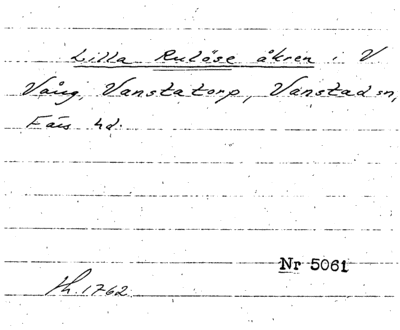 Lilla Rulöse åkren i V
Vång, Vanstatorp, Vanstad sn,
Färs hd.
Nr 5061
Lh. 1762